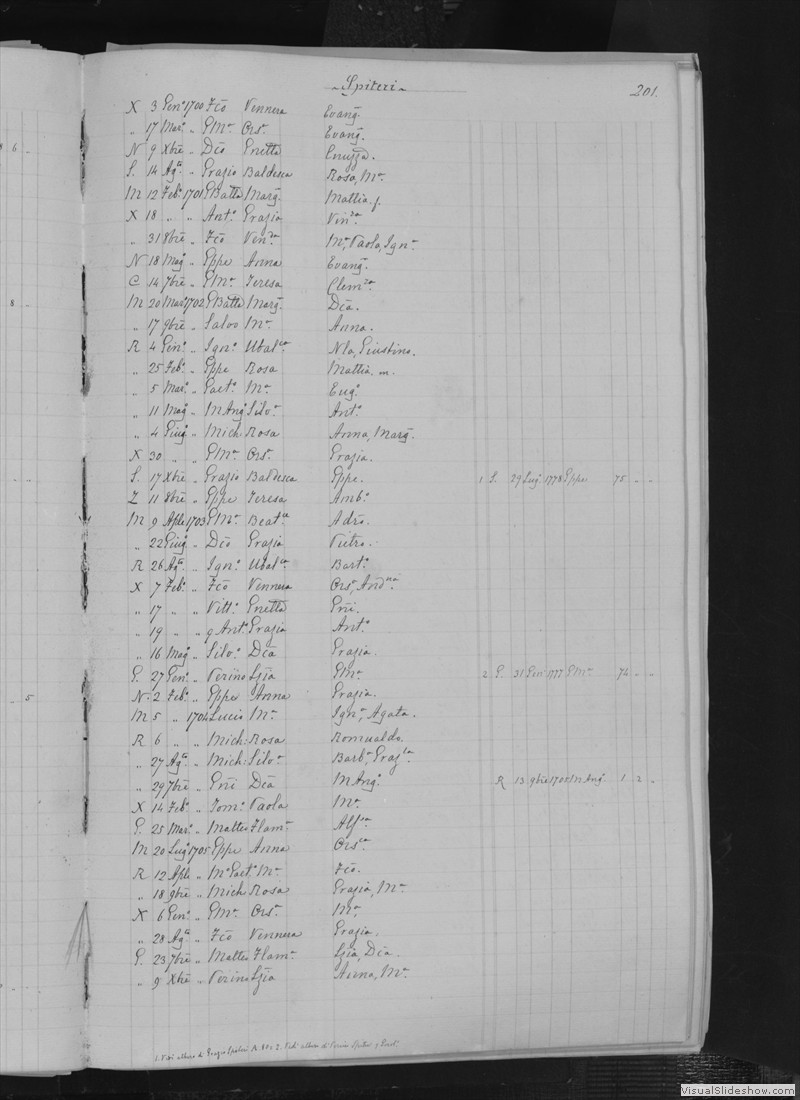 Spiteri 201.
X 3 Gen.º 1700 Fcō Vennera Evang.
" 17 Mar.º " GMª Ors.ª Evang.
N 9 Xbrē " Dcō Gnetta
S. 14 Ag.º " Grazio Baldesca Rosa, Mª
M 12 Feb.º 1701 GBatta Marg. Mattia f.
X 18 " " Ant.º Grazia Vin.ᶻᵃ
" 31 8brē " Fcō Ven.ʳᵃ Mª, Paolo, Ign.º
N 18 Mag. " Gppe Anna Evang.
C 14 7brē " GMª Teresa Clem.ᶻᵃ
M 20 Mar. 1702 GBatta Marg. Dcā.
" 17 9brē " Salvo Mª Anna.
R 4 Gen.º " Ign.º Ubal.ᶜᵃ Nla, Giustina.
" 25 Feb.º " Gppe Rosa Mattia m.
" 5 Mar.º " Gaet.º Mª Eug.ª
" 11 Mag. " MAng. Silv.ª Ant.º
" 4 Giug. " Mich. Rosa Anna, Marg.
X 30 " " GMª Ors.ª Grazia.
S. 17 Xbrē " Grazio Baldesca Gppe. 1 S. 29 Lug. 1778 Gppe 75 " "
Z 11 8brē " Gppe Teresa Amb.º
M 9 Aple 1703 GMª Beat.ᶜᵉ Adrō.
" 22 Giug. " Dcō Grazia Pietro.
R 26 Ag. " Ign.º Ubal.ᶜᵃ Bart.º
X 7 Feb.º " Fcō Vennera Ors.ª, And.ⁿᵃ
" 17 " " Vitt.º Gnetta Gñi.
" 19 " " q Ant.º Grazia Ant.º
" 16 Mag. " Silv.º Dcā Grazia.
G. 27 Gen.º " Verino Ljia GMª 2 G. 31 Gen. 1777 GMª 74 " "
N. 2 Feb.º " Gppe Anna Grazia.
M 5 " 1704 Lucio Mª Ign.ª, Agata.
R 6 " " Mich. Rosa Romualdo.
" 27 Ag. " Mich. Silv.ª Barb.ª, Graz.ˡᵃ
" 29 7brē " Gñi Dcā MAng.º R 13 9brē 1705 MAng.º 1 2 "
X 14 Feb.º " Tom.º Paola Mª
G. 25 Mar.º " Matteo Flam.ª Alf.
M 20 Lug. 1705 Gppe Anna Ors.ˡᵃ
R 12 Aple " Mº Gaet.º Mª Fcō.
" 18 9brē " Mich. Rosa Grazia, Mª
X 6 Gen.º " GMª Ors.ª Mª
" 28 Ag. " Fcō Vennera Grazia.
G. 23 7brē " Matteo Flam.ª Ljia, Dcā.
" 9 Xbrē " Verino Ljia Anna, Mª
1. Vedi albero di Grazio Spiteri 2. Vedi albero di Verino Spiteri
VisualSlideshow.com